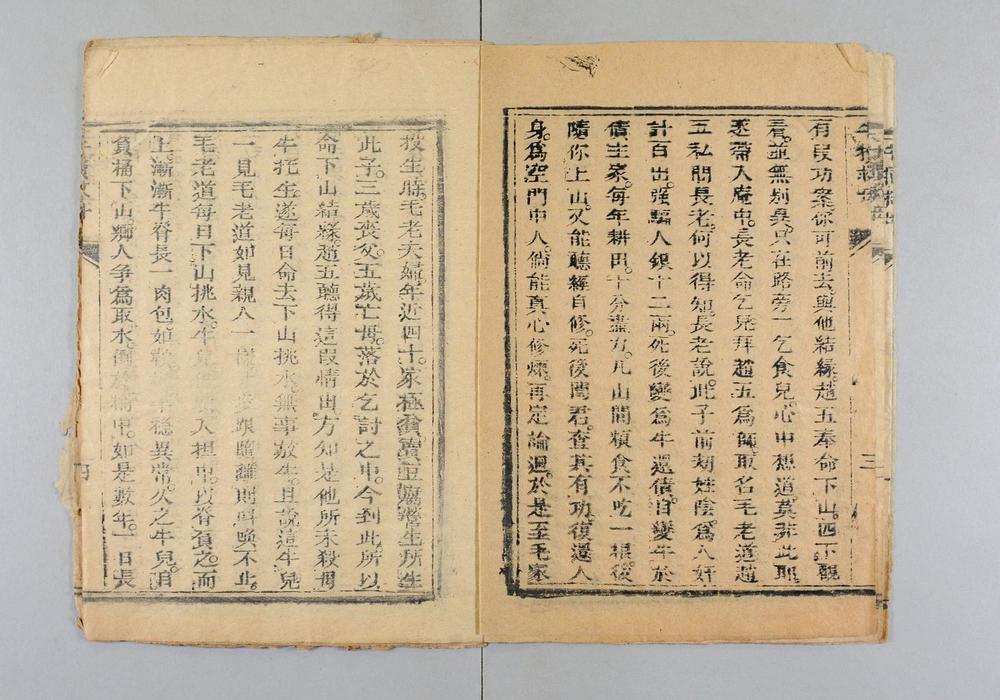 有段功案你可前去與他結緣。趙五奉命下山。四下觀
看。並無別異。只在路旁一乞食兒。心中想道莫非此耶
遂帶入庵中。長老命乞兒拜趙五為師取名毛老道趙
五私問長老。何以得知。長老說。此子前刼姓陰。為人奸
計百出。强騙人銀十二兩。死後變為牛還債。自變牛於
債主家。每年耕田。十分盡力。凡山間粮食不吃一根。後
隨你上山。又能聽經自修。死後閻君。查其有功。復還人
身。為空門中人。倘能真心修煉。再定論迴。於是至毛家
投生時。毛老夫婦。年近四十。家極貧。賣豆腐營生所生
此子。三歲喪父。五歲亡母。落於乞討之中。今到此所以
命下山結緣。趙五聽得這段情由。方知是他所未殺母
牛托生。遂每日命去下山挑水。無事放牛。且說這牛兒
一見毛老道如見親人一 跟隨離則叫喚不止。
毛老道每日下山挑水。牛 入担中。以脊負之。而
上。漸漸牛脊長一肉包。如鞍 穩異常。久之牛兒。自
負桶下山。鄉人爭為取水。倒 桶中。如是數年。一日長
三
四